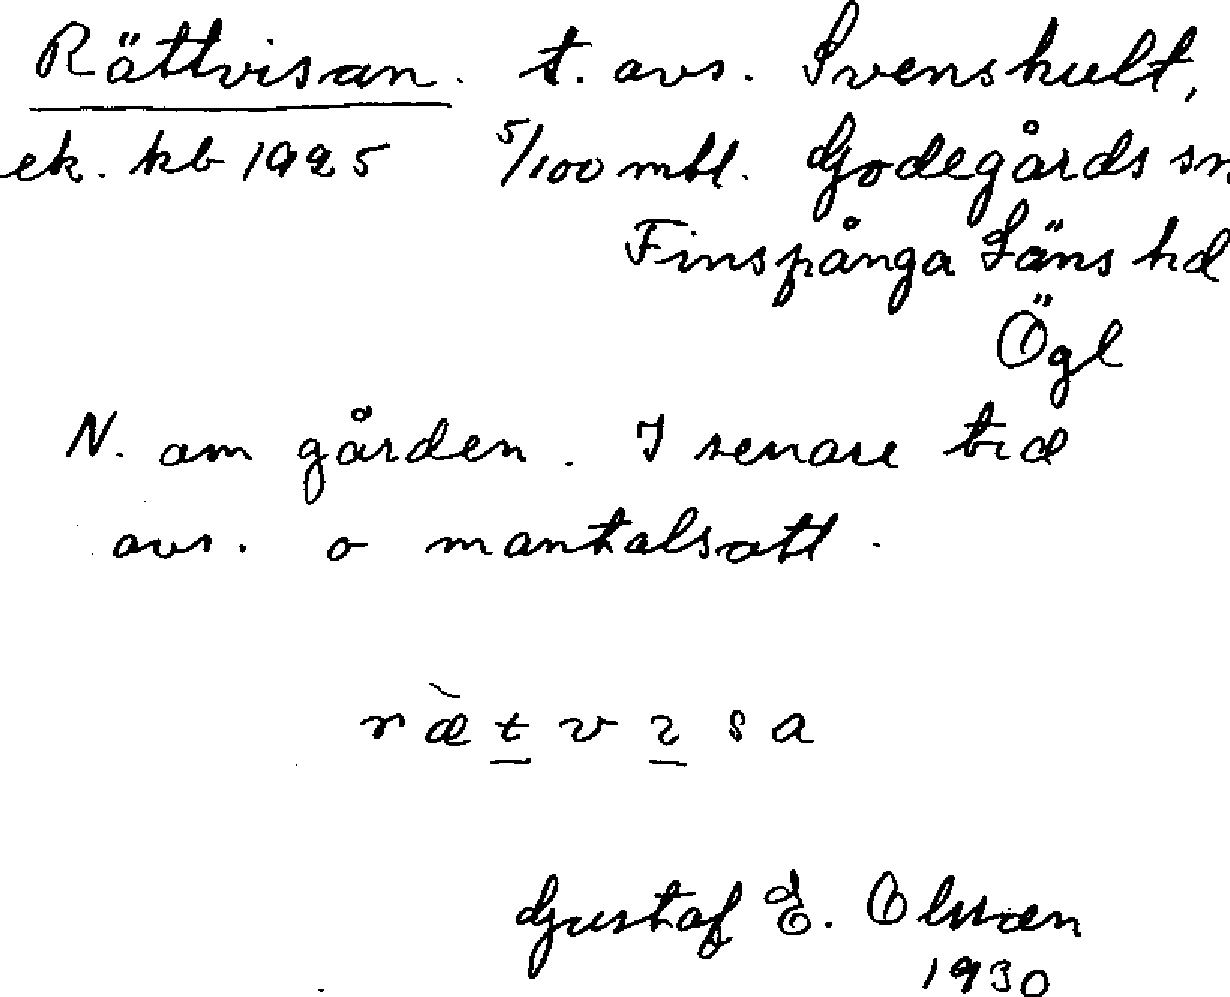 Rättvisan. t. avs. Svenshult,
ek. kb 1925 5/100 mtl. Godegårds sn
Finspånga Läns hd
Ögl
N. om gården. I senare tid
avs. o mantalsatt.
rætvɩsa
Gustaf E. Olsson
1930